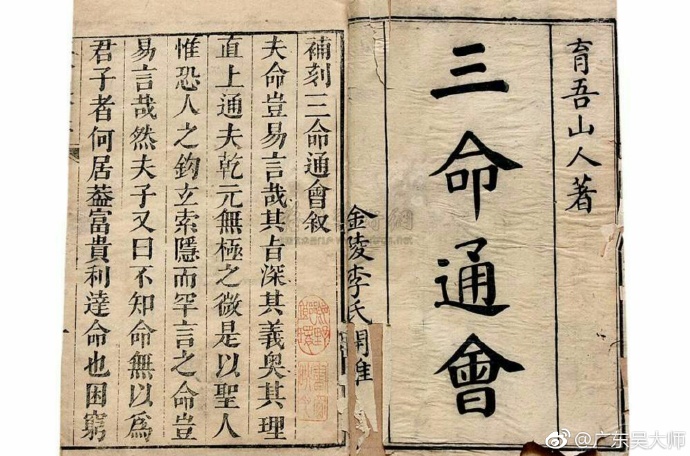 育吾山人著
三命通會
金陵李氏
補刻三命通會叙
夫命豈易言哉其旨深其義奥其理
直上通夫乾元無極之微是以聖人
惟恐人之鈎玄索隱而罕言之命豈
易言哉然夫子又曰不知命無以爲
君子者何居葢富貴利達命也困窮
@广东吴大师